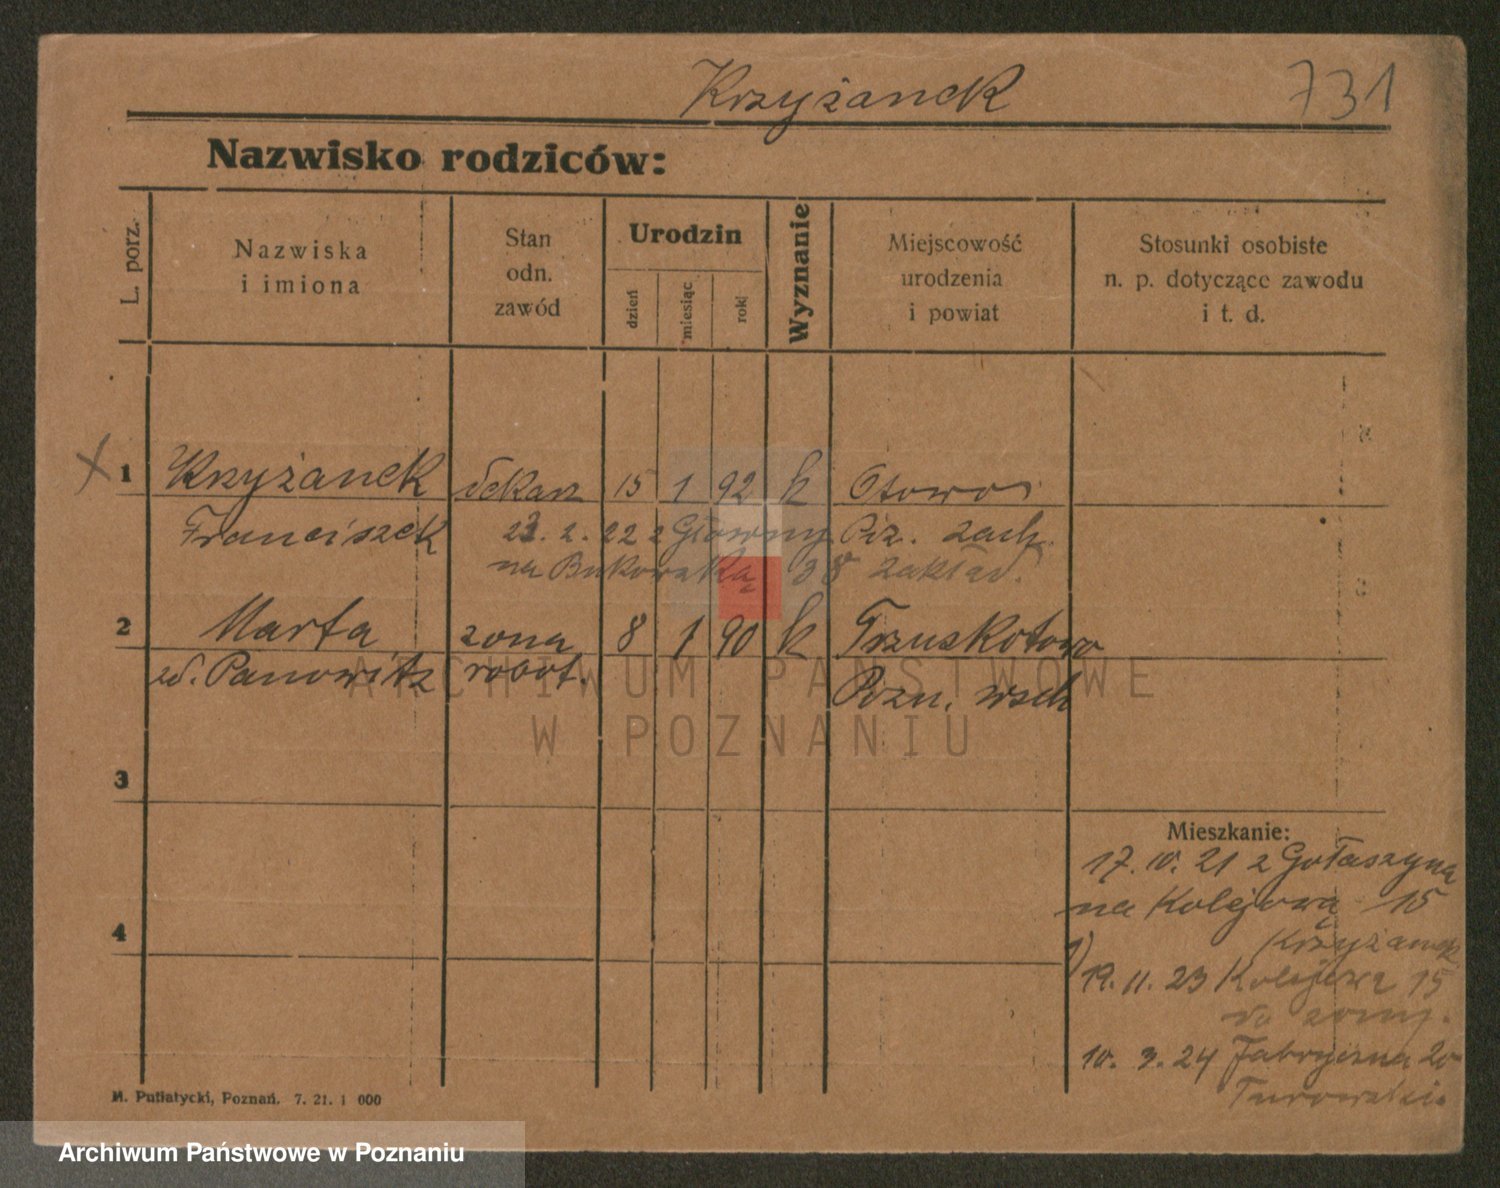 Krzyżanek 731
Nazwisko rodziców:
L. porz.
Nazwiska
i imiona
Stan
odn.
zawód
Urodzin
dzień
miesiąc
rok
Wyznanie
Miejscowość
urodzenia
i powiat
Stosunki osobiste
n. p. dotyczące zawodu
i t. d.
X 1 Krzyżanek dekarz 15 1 92 k Otowo
Franciszek 23. 2. 22 z Głowny Poz. zach.
na Bukowską 38 zakład.
2 Marta żona 8 1 90 k Trzuskotowo
zd. Panowitz robot. Pozn. wsch
3
Mieszkanie:
17. 10. 21 z Gołaszyna
na Kolejową 15
4
1) Krzyżanek
19. 11. 23 Kolejowa 15
do żony.
10. 3. 24 Fabryczna 20
Turowski.
M. Putiatycki, Poznań. 7. 21. 1 000
ARCHIWUM PAŃSTWOWE
W POZNANIU
Archiwum Państwowe w Poznaniu